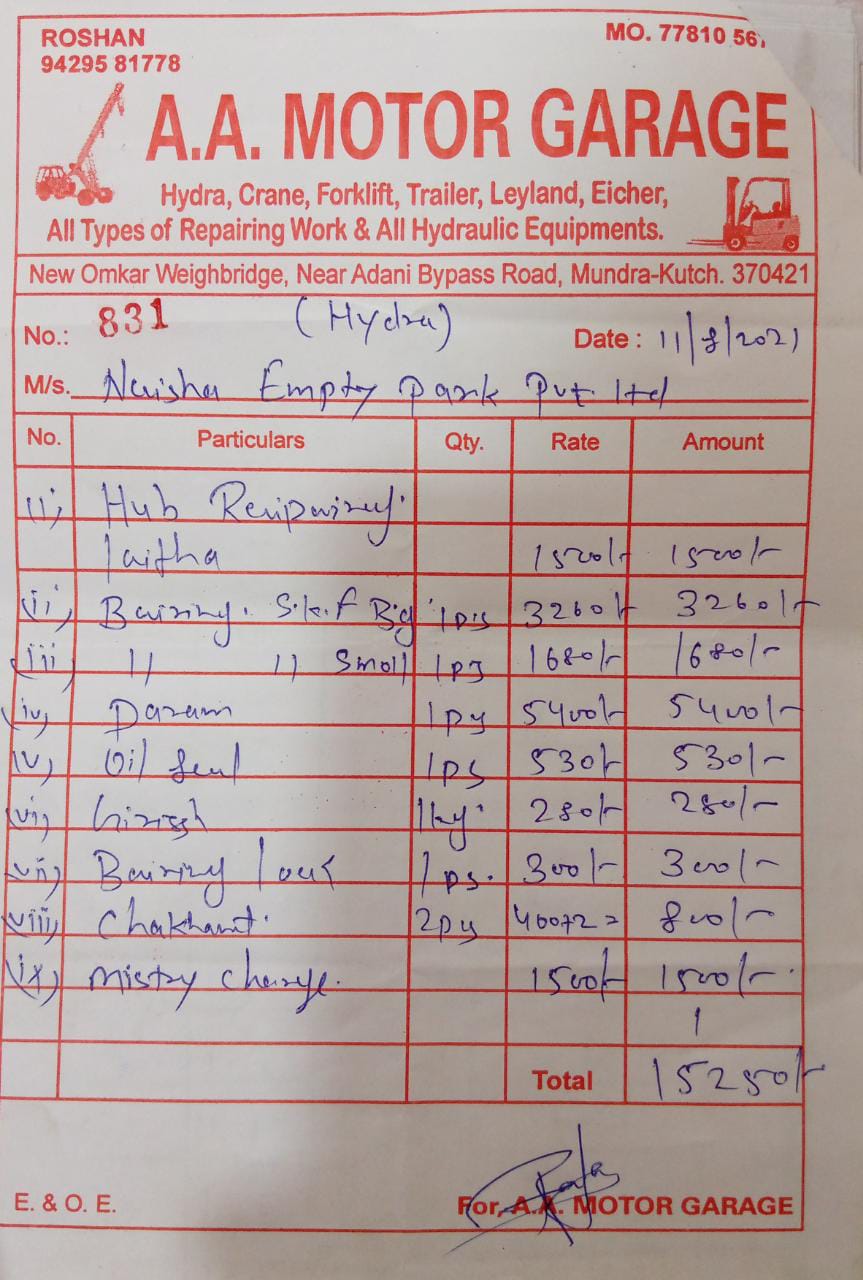 ROSHAN
94295 81778
MO. 77810 567
A.A. MOTOR GARAGE
Hydra, Crane, Forklift, Trailer, Leyland, Eicher,
All Types of Repairing Work & All Hydraulic Equipments.
New Omkar Weighbridge, Near Adani Bypass Road, Mundra-Kutch. 370421
No.: 831 (Hydra) Date : 11/8/2021
M/s. Naisha Empty Park Pvt. ltd
No. Particulars Qty. Rate Amount
(i) Hub Reipairing
laitha 1500/- 1500/-
(ii) Bairing. S.k.f Big 1ps 3260/- 3260/-
(iii) 11 11 Small 1ps 1680/- 1680/-
(iv) Daram 1ps 5400/- 5400/-
(v) Oil Seal 1ps 530/- 530/-
(vi) Girish 1kg. 280/- 280/-
(vii) Bairing lock 1ps. 300/- 300/-
(viii) 2ps 400+2= 800/-
(ix) Mistry Charge. 1500/- 1500/-
Total 15250/-
E. & O. E. For, A.A. MOTOR GARAGE